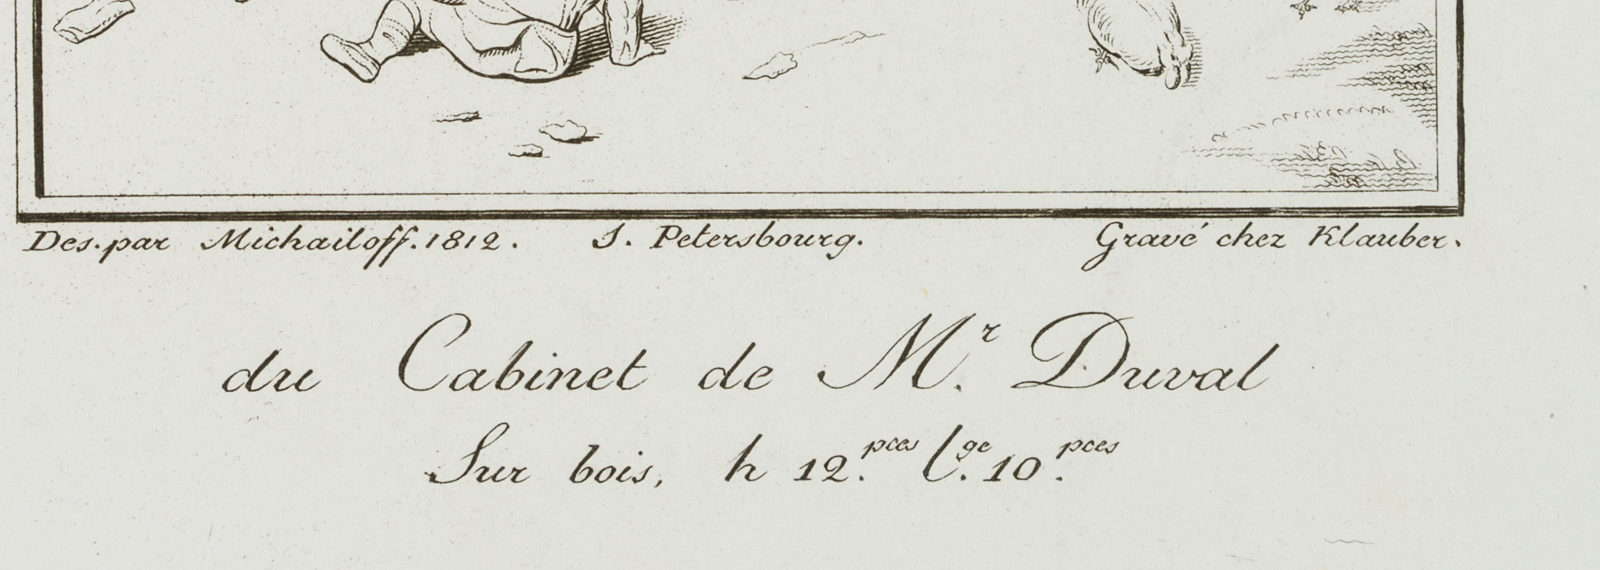 Des. par Michailoff. 1812. S. Petersbourg. Gravé chez Klauber.
du Cabinet de Mr. Duval
Sur bois, h 12.pces lge. 10.pces